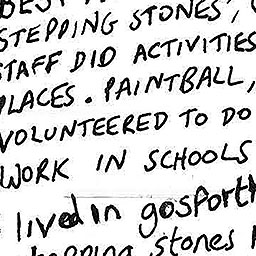 BEST
STEPPING STONES,
STAFF DID ACTIVITIES
PLACES. PAINTBALL,
VOLUNTEERED TO DO
WORK IN SCHOOLS
lived in gosport
stepping stones